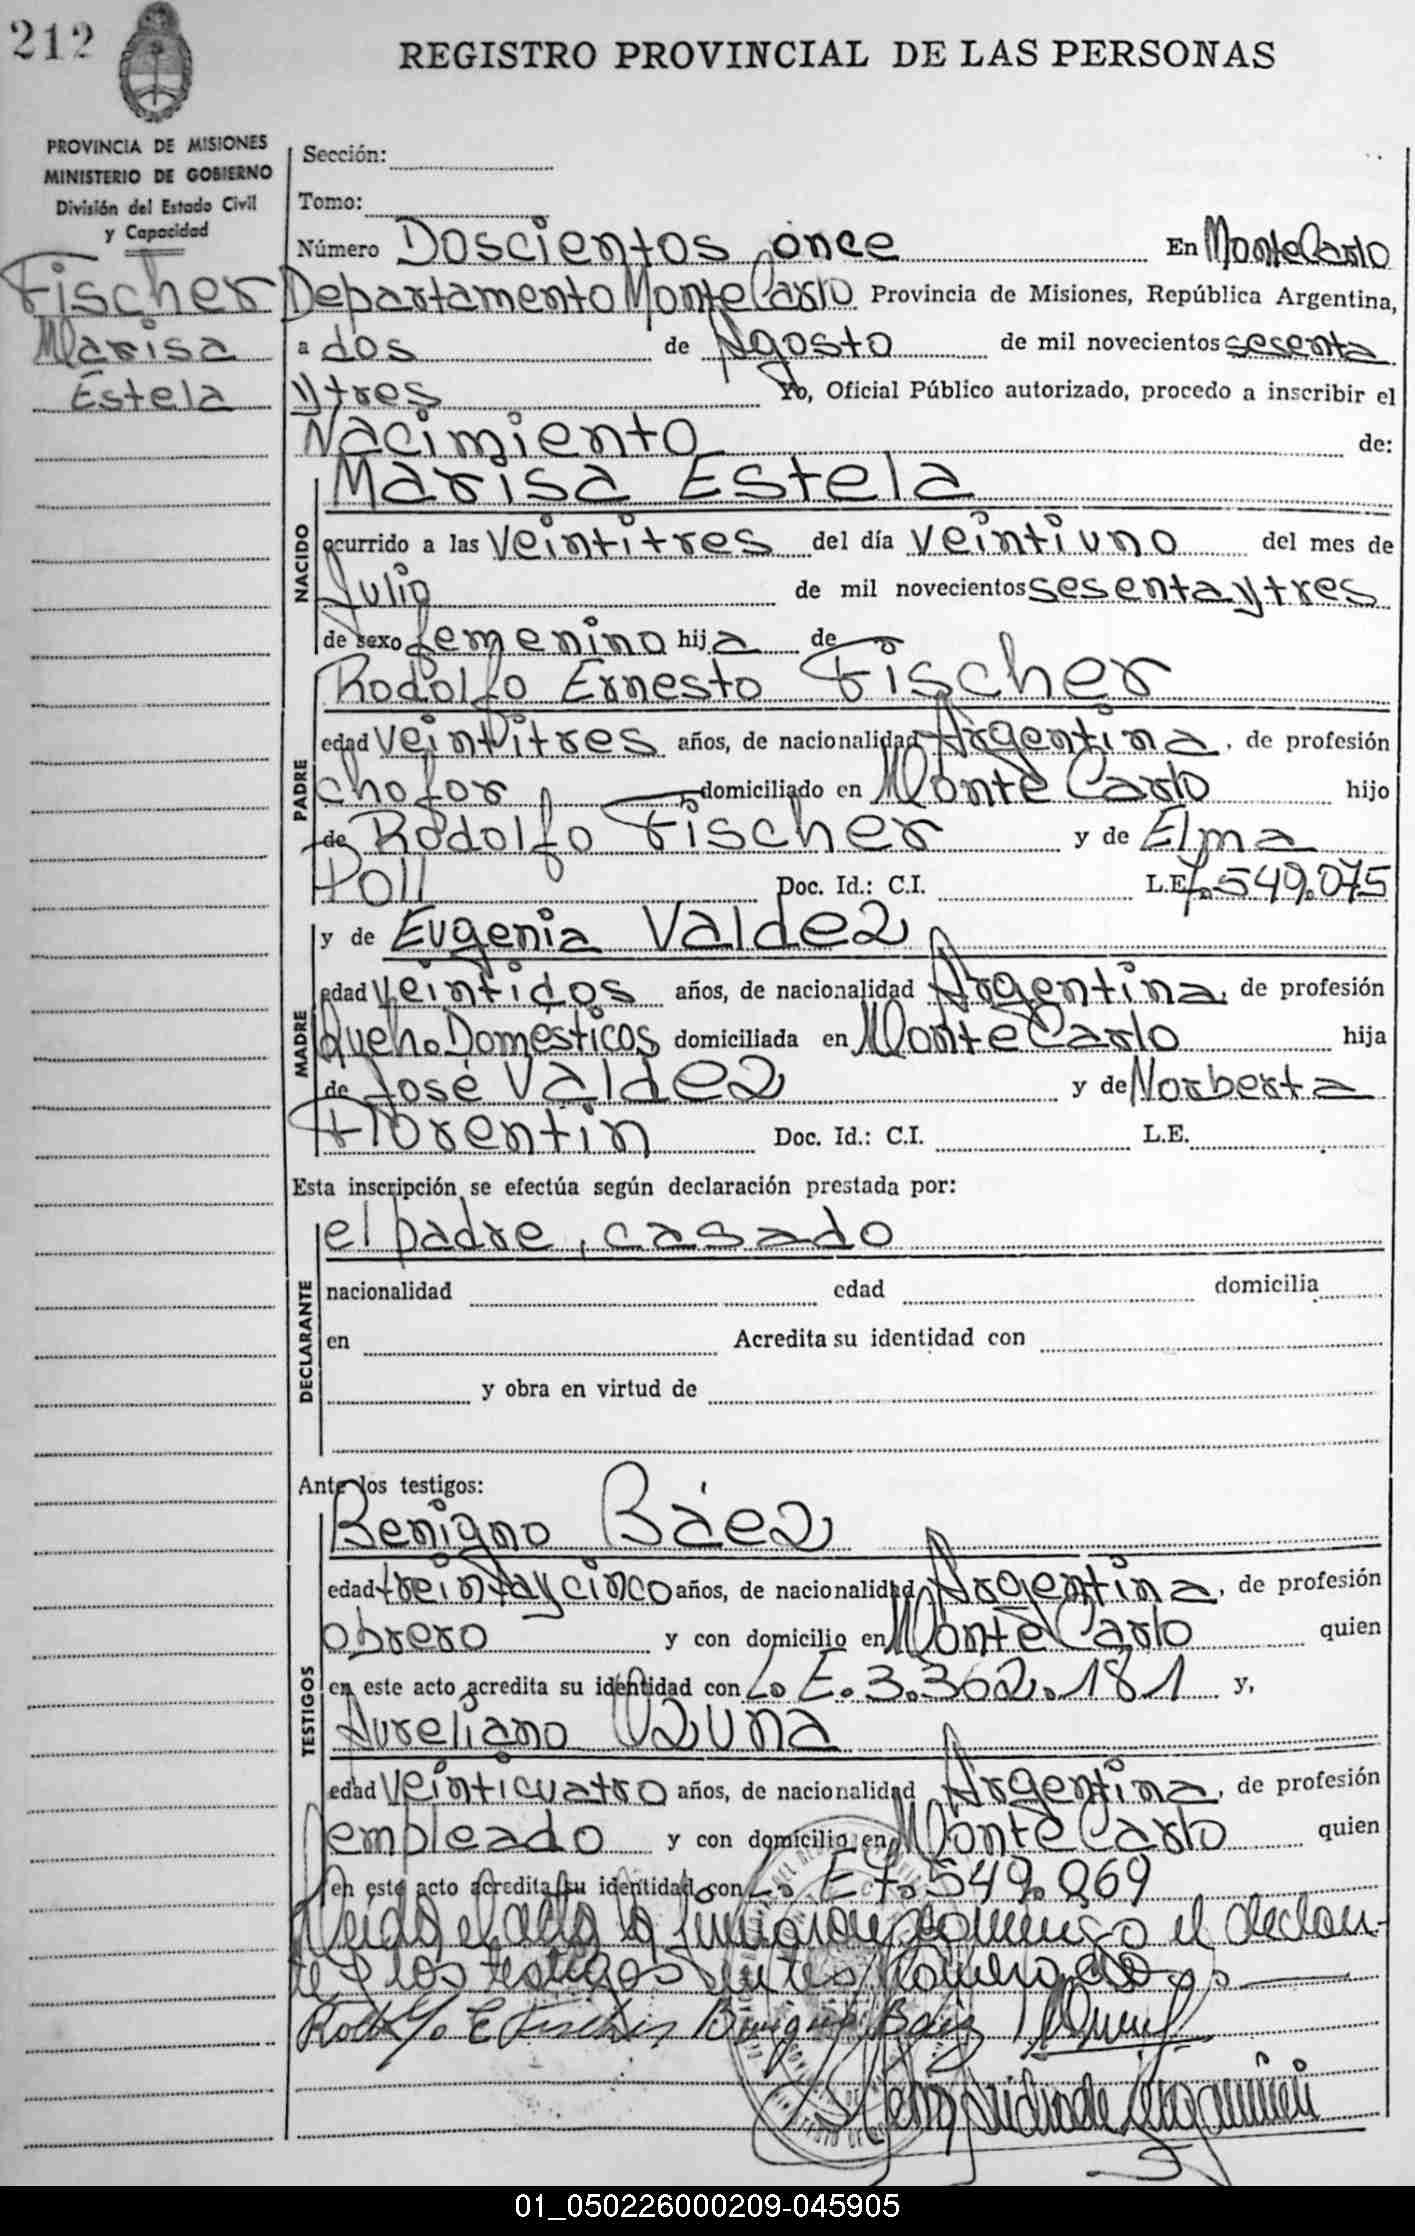 212
REGISTRO PROVINCIAL DE LAS PERSONAS
PROVINCIA DE MISIONES
MINISTERIO DE GOBIERNO
División del Estado Civil
y Capacidad
Fischer
Marisa
Estela
Sección:
Tomo:
Número Doscientos once En Monte Carlo
Departamento Monte Carlo Provincia de Misiones, República Argentina,
a dos de Agosto de mil novecientos sesenta
y tres Yo, Oficial Público autorizado, procedo a inscribir el
Nacimiento de:
NACIDO
Marisa Estela
ocurrido a las veintitres del día veintiuno del mes de
Julio de mil novecientos sesenta y tres
de sexo femenino hija de
PADRE
Rodolfo Ernesto Fischer
edad veintitres años, de nacionalidad Argentina, de profesión
chofor domiciliado en Monte Carlo hijo
de Rodolfo Fischer y de Elma
Poll Doc. Id.: C.I. L.E. 7.549.075
MADRE
y de Eugenia Valdez
edad veintidos años, de nacionalidad Argentina, de profesión
Queh. Domésticos domiciliada en Monte Carlo hija
de José Valdez y de Norberta
Florentin Doc. Id.: C.I. L.E.
Esta inscripción se efectúa según declaración prestada por:
DECLARANTE
el padre, casado
nacionalidad edad domicilia
en Acredita su identidad con
y obra en virtud de
Ante los testigos:
TESTIGOS
Benigno Báez
edad treinta y cinco años, de nacionalidad Argentina, de profesión
obrero y con domicilio en Monte Carlo quien
en este acto acredita su identidad con L. E. 3.362.181 y,
Aureliano Ozuna
edad veinticuatro años, de nacionalidad Argentina, de profesión
empleado y con domicilio en Monte Carlo quien
en este acto acredita su identidad con L. E 7.549.069
Leida el acta la firmaron conmigo el declaran-
te y los testigos
Rodolfo E Fischer Benigno Baez
01_050226000209-045905